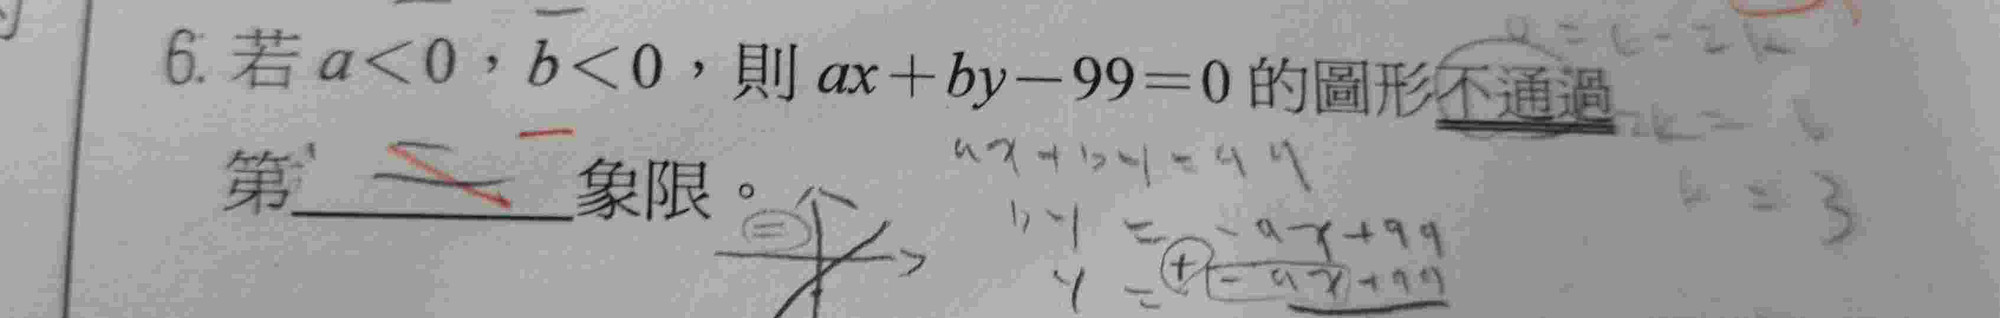 6. 若 a<0，b<0，則 ax+by−99=0 的圖形不通過
第 二 象限。
一
ax+by=99
by = -ax+99
y = -ax+99
+
二
= 3